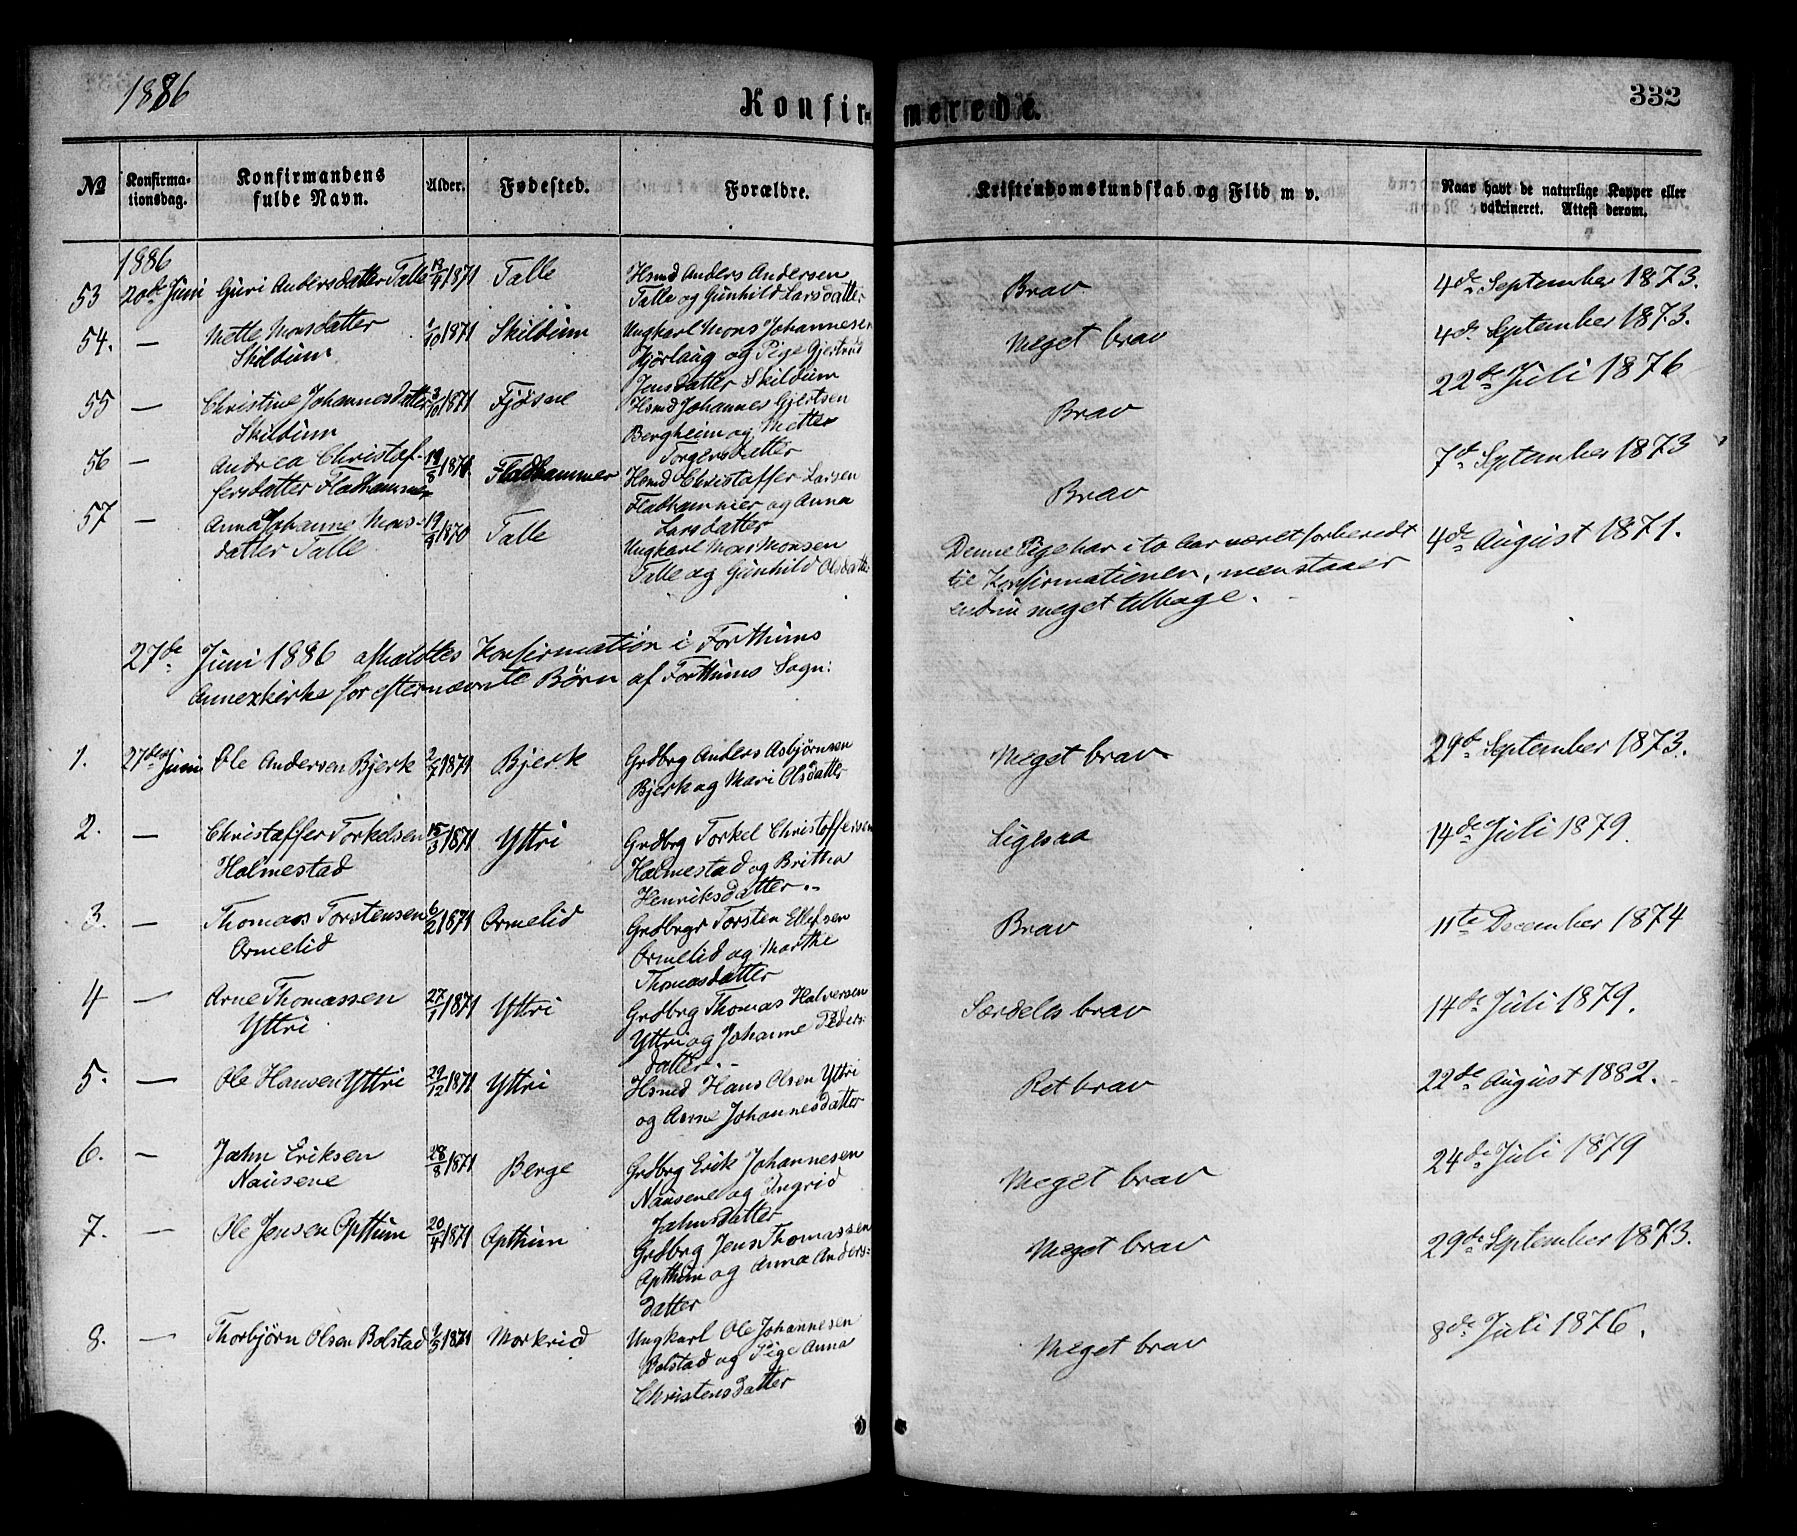 1886
Konfirmerede.
332
№
Konfirma-
tionsdag.
Konfirmandens
fulde Navn.
Alder.
Fødested.
Forældre.
Kristendomskundskab og Flid m v.
Naar havt de naturlige Kopper eller
vakcineret. Attest derom.
1886
53 20de Juni Guri Andersdatter Talle 1871 Talle
Hsmd Anders Andersen
Talle og Gunhild Larsdatter
Brav
4de September 1873.
54. — Mette Monsdatter
Skildum
1871 Skildum
Ungkarl Mons Johannesen
Kjørlaug og Pige Gjertrud
Jensdatter Skildum
Meget brav
4de September 1873.
55 — Christine Johannesdatter
Skildum
3/10 1871 Fjøsne
Hsmd Johannes Gjertsen
Bergheim og Mette
Torgersdatter
Brav
22de Juli 1876
56 — Andrea Christof-
fersdatter Fladhammer
Fladhammer
Hsmd Christoffer Larsen
Fladhammer og Anna
Larsdatter
Brav
7de September 1873
57 — Anna Johanne Mons-
datter Talle
1870 Talle
Ungkarl Mons Monsen
Talle og Gunhild Olsdatter
Denne Pige har i to Aar været forberedt
til Konfirmationen, men staaer
endnu meget tilbage.
4de August 1871.
27de Juni 1886 afholdtes Konfirmation i Forthuns
Annexkirke for efternævnte Børn af Forthuns Sogn:
1. 27de Juni Ole Andersen Bjerk 2/7 1871 Bjerk
Grdbrg Anders Asbjørnsen
Bjerk og Mari Olsdatter
Meget brav
29de September 1873.
2. — Christoffer Torkelsen
Holmestad
15/3 1871 Yttri
Grdbrg Torkel Christoffersen
Holmestad og Britha
Henriksdatter.
Ligesaa
14de Juli 1879.
3. — Thomas Torstensen
Ormelid
6/2 1871 Ormelid
Grdbrgr Torsten Ellefsen
Ormelid og Marthe
Thomasdatter
Brav
11te December 1874
4 — Arne Thomassen
Yttri
1871 Yttri
Grdbrg Thomas Halversen
Yttri og Johanne Peders-
datter.
Særdeles brav
14de Juli 1879.
5. — Ole Hansen Yttri 29/12 1871 Yttri
Hsmd Hans Olsen Yttri
og Anne Johannesdatter
Ret brav
22de August 1882.
6. — John Eriksen
Nausene
28/8 1871 Berge
Grdbrg Erik Johannesen
Nausene og Ingrid
Johnsdatter
Meget brav
24de Juli 1879
7. — Ole Jensen Opthun 20/4 1871 Opthun
Grdbrg Jens Thomassen
Opthun og Anna Anders-
datter
Meget brav
29de September 1873.
8. — Thorbjørn Olsen Bolstad 9/3 1871 Morkrid
Ungkarl Ole Johannesen
Bolstad og Pige Anna
Christensdatter
Meget brav
8de Juli 1876.